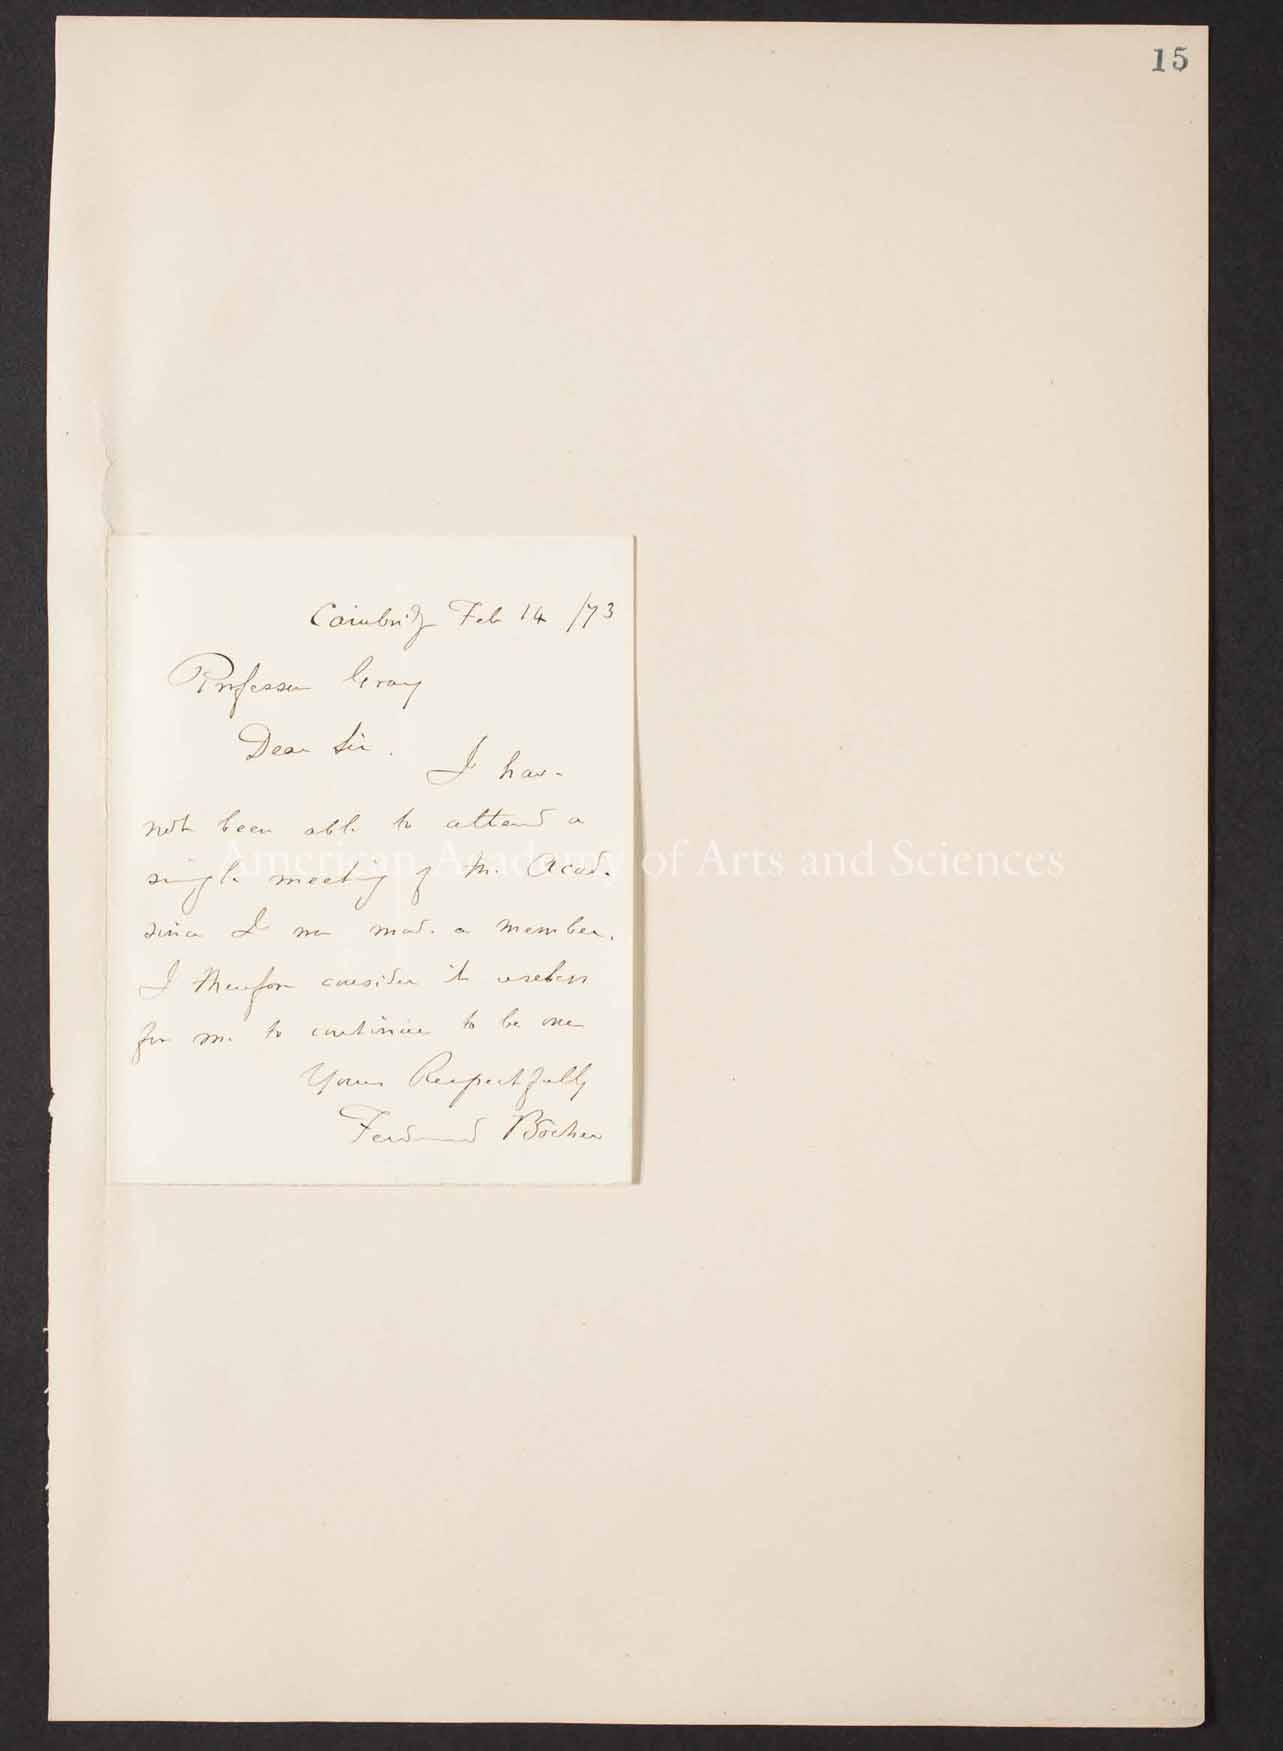 15
Cambridge Feb 14 /73
Professor Gray
Dear Sir.
I have
not been able to attend a
single meeting of the Acad.
since I was made a member.
I therefore consider it useless
for me to continue to be one
Yours Respectfully
Ferdinand Bôcher
American Academy of Arts and Sciences